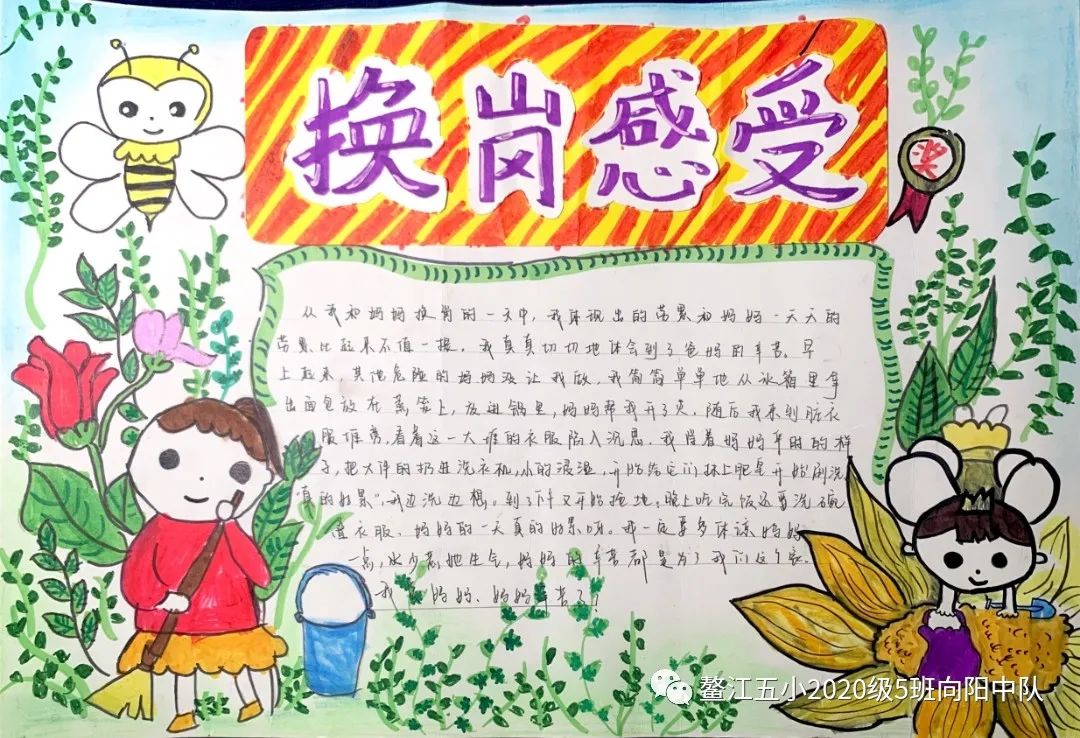 换岗感受
奖
从我和妈妈换岗的一天中,我体现出的劳累和妈妈一天天的
劳累比起来不值一提,我真真切切地体会到了爸妈的辛苦。早
上起来,其他危险的妈妈没让我做,我简简单单地从冰箱里拿
出面包放在蒸笼上,放进锅里,妈妈帮我开了火,随后我来到脏衣
服堆旁,看着这一大堆的衣服陷入沉思,我学着妈妈平时的样
子,把大件的扔进洗衣机,小的浸湿,开始给它们抹上肥皂开始刷洗,
"真的好累"我边洗边想。到了下午又开始拖地。晚上吃完饭还要洗碗
叠衣服、妈妈的一天真的好累呀。我一定要多体谅妈妈
一点,少惹她生气,妈妈的辛苦都是为了我们这个家。
我 妈妈、妈妈辛苦了!
鳌江五小2020级5班向阳中队